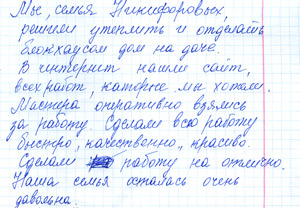 Мы, семья Никифоровых,
решили утеплить и отделать
блокхаусом дом на даче.
В интернет нашли сайт,
всех работ, которые мы хотели.
Мастера оперативно взялись
за работу. Сделали всю работу
быстро, качественно, красиво.
Сделали работу на отлично.
Наша семья осталась очень
давольна.